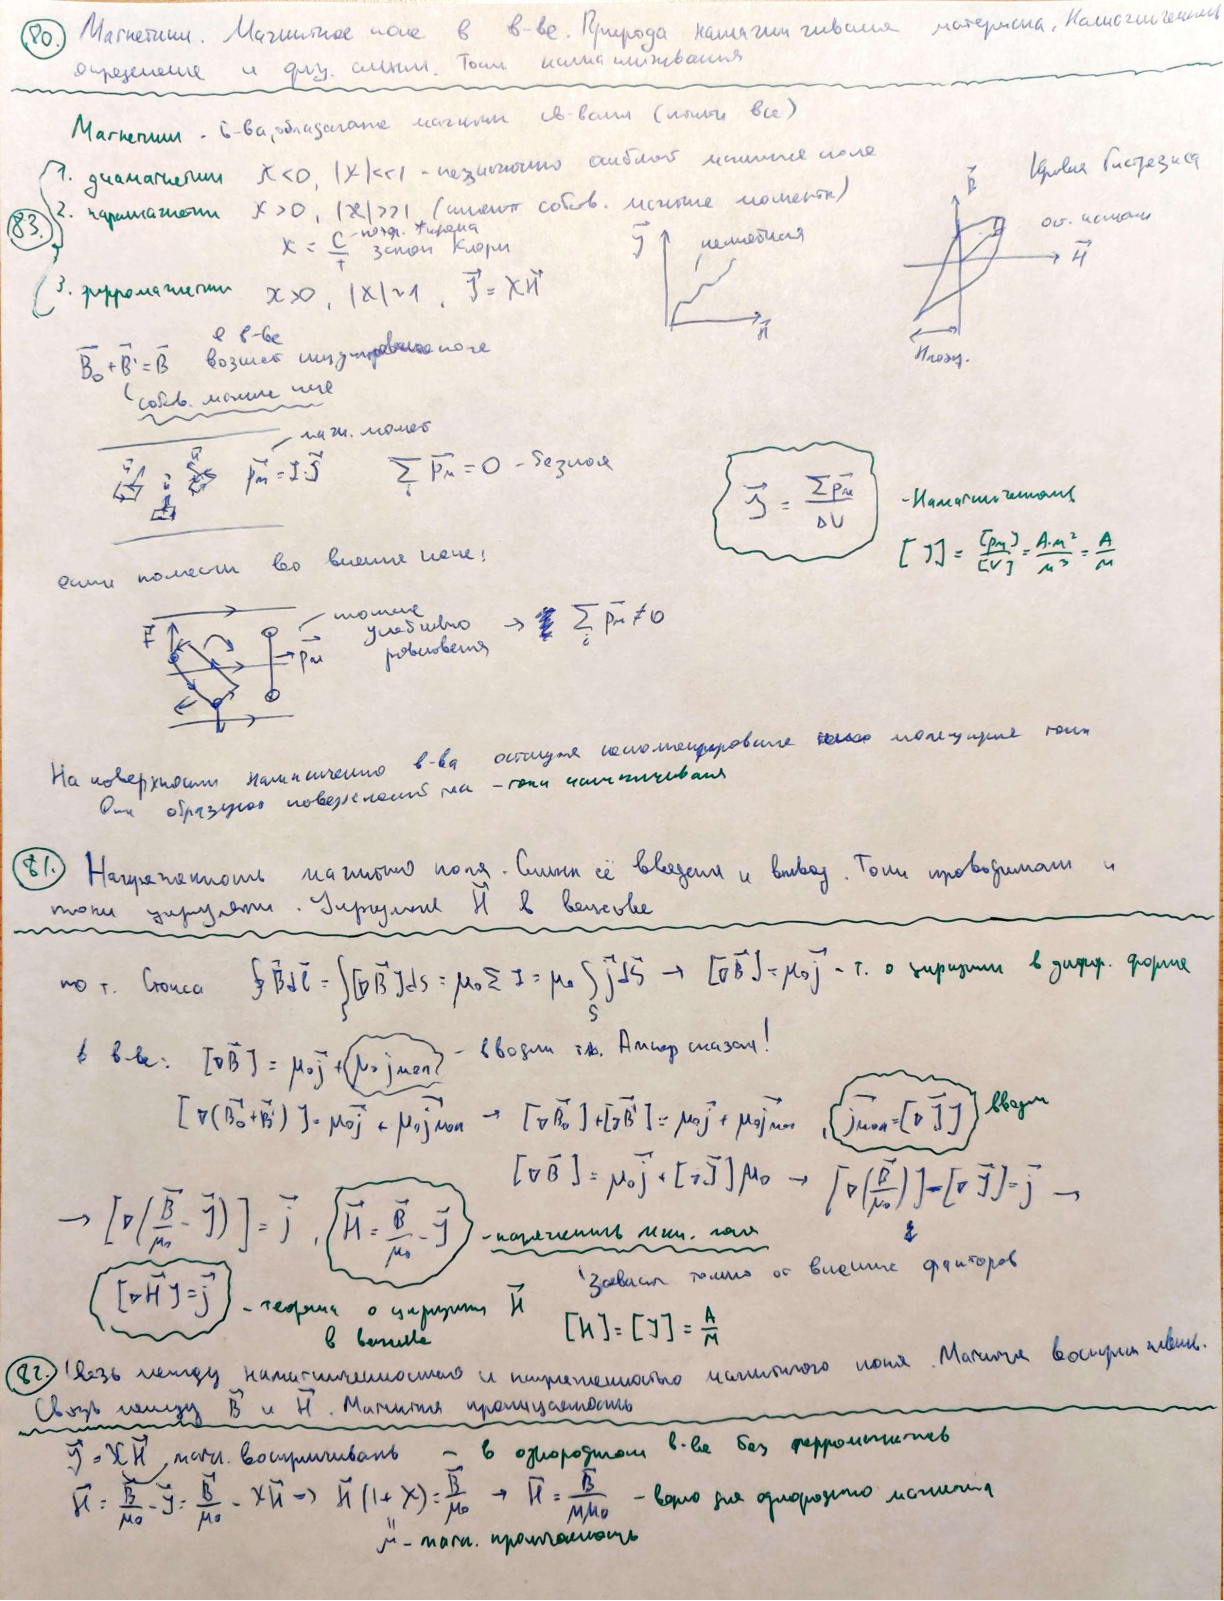 80. Магнетики. Магнитное поле в в-ве. Природа намагничивания материала. Намагниченность
определение и физ. смысл. Токи намагничивания
Магнетики - в-ва, обладающие магнитн св-вами (почти все)
1. диамагнетики χ<0, |χ|<<1 - незначительно ослабл магнитное поле
83.
2. парамагнетики χ>0, |χ|>>1 (имеют собств. магнитные моменты)
χ = C/T закон Кюри
3. ферромагнетики χ>0, |χ|~1, J⃗ = χH⃗
J⃗ нелинейная H⃗
B⃗ Кривая Гистерезиса
ост. намагн
H⃗
Hкоэрц.
B⃗₀+B⃗'=B⃗ в в-ве возник индуцированное поле
собств. магнитное поле
магн. момент
p⃗м = I·S⃗ ∑ᵢ p⃗м = 0 - без поля
J⃗ = ∑p⃗м / ΔV - Намагниченность
[J] = [pм]/[V] = А·м²/м³ = А/м
если поместить во внешнее поле:
F⃗ p⃗м положение устойчивого равновесия → ∑ᵢ p⃗м ≠ 0
На поверхности намагниченного в-ва остаются нескомпенсированные молекулярные токи
Они образуют поверхностный ток - токи намагничивания
81. Напряженность магнитного поля. Смысл её введения и вывод. Токи проводимости и
токи циркуляции. Циркуляция H⃗ в веществе
по т. Стокса ∮B⃗dl⃗ = ∫[∇B⃗]dS = μ₀∑I = μ₀ ∫ₛ j⃗dS⃗ → [∇B⃗] = μ₀j⃗ - т. о циркуляции в дифф. форме
в в-ве: [∇B⃗] = μ₀j⃗ + μ₀j⃗мол - вводим т.к. Ампер сказал!
[∇(B⃗₀+B⃗')] = μ₀j⃗ + μ₀j⃗мол → [∇B⃗₀]+[∇B⃗'] = μ₀j⃗ + μ₀j⃗мол, j⃗мол = [∇J⃗] вводим
[∇B⃗] = μ₀j⃗ + [∇J⃗]μ₀ → [∇(B⃗/μ₀)] - [∇J⃗] = j⃗ →
→ [∇(B⃗/μ₀ - J⃗)] = j⃗, H⃗ = B⃗/μ₀ - J⃗ - напряженность магн. поля
Зависит только от внешних факторов
[∇H⃗] = j⃗ - теорема о циркуляции H⃗ в веществе
[H] = [J] = А/м
82. Связь между намагниченностью и напряженностью магнитного поля. Магнитная восприимчивость.
Связь между B⃗ и H⃗. Магнитная проницаемость
J⃗ = χH⃗ магн. восприимчивость - в однородном в-ве без ферромагнетиков
H⃗ = B⃗/μ₀ - J⃗ = B⃗/μ₀ - χH⃗ → H⃗(1+χ) = B⃗/μ₀ → H⃗ = B⃗/μμ₀ - верно для однородного магнетика
μ - магн. проницаемость